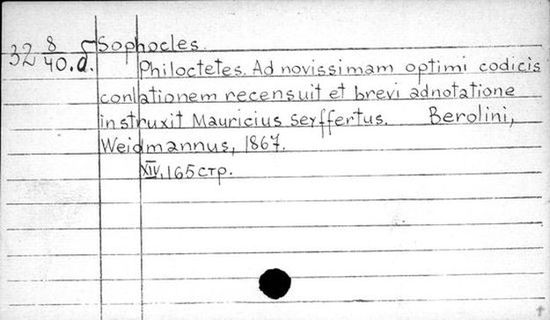 32 8/40.d. Sophocles.
Philoctetes. Ad novissimam optimi codicis
conlationem recensuit et brevi adnotatione
instruxit Mauricius Seyffertus. Berolini,
Weidmannus, 1867.
XIV, 165 стр.